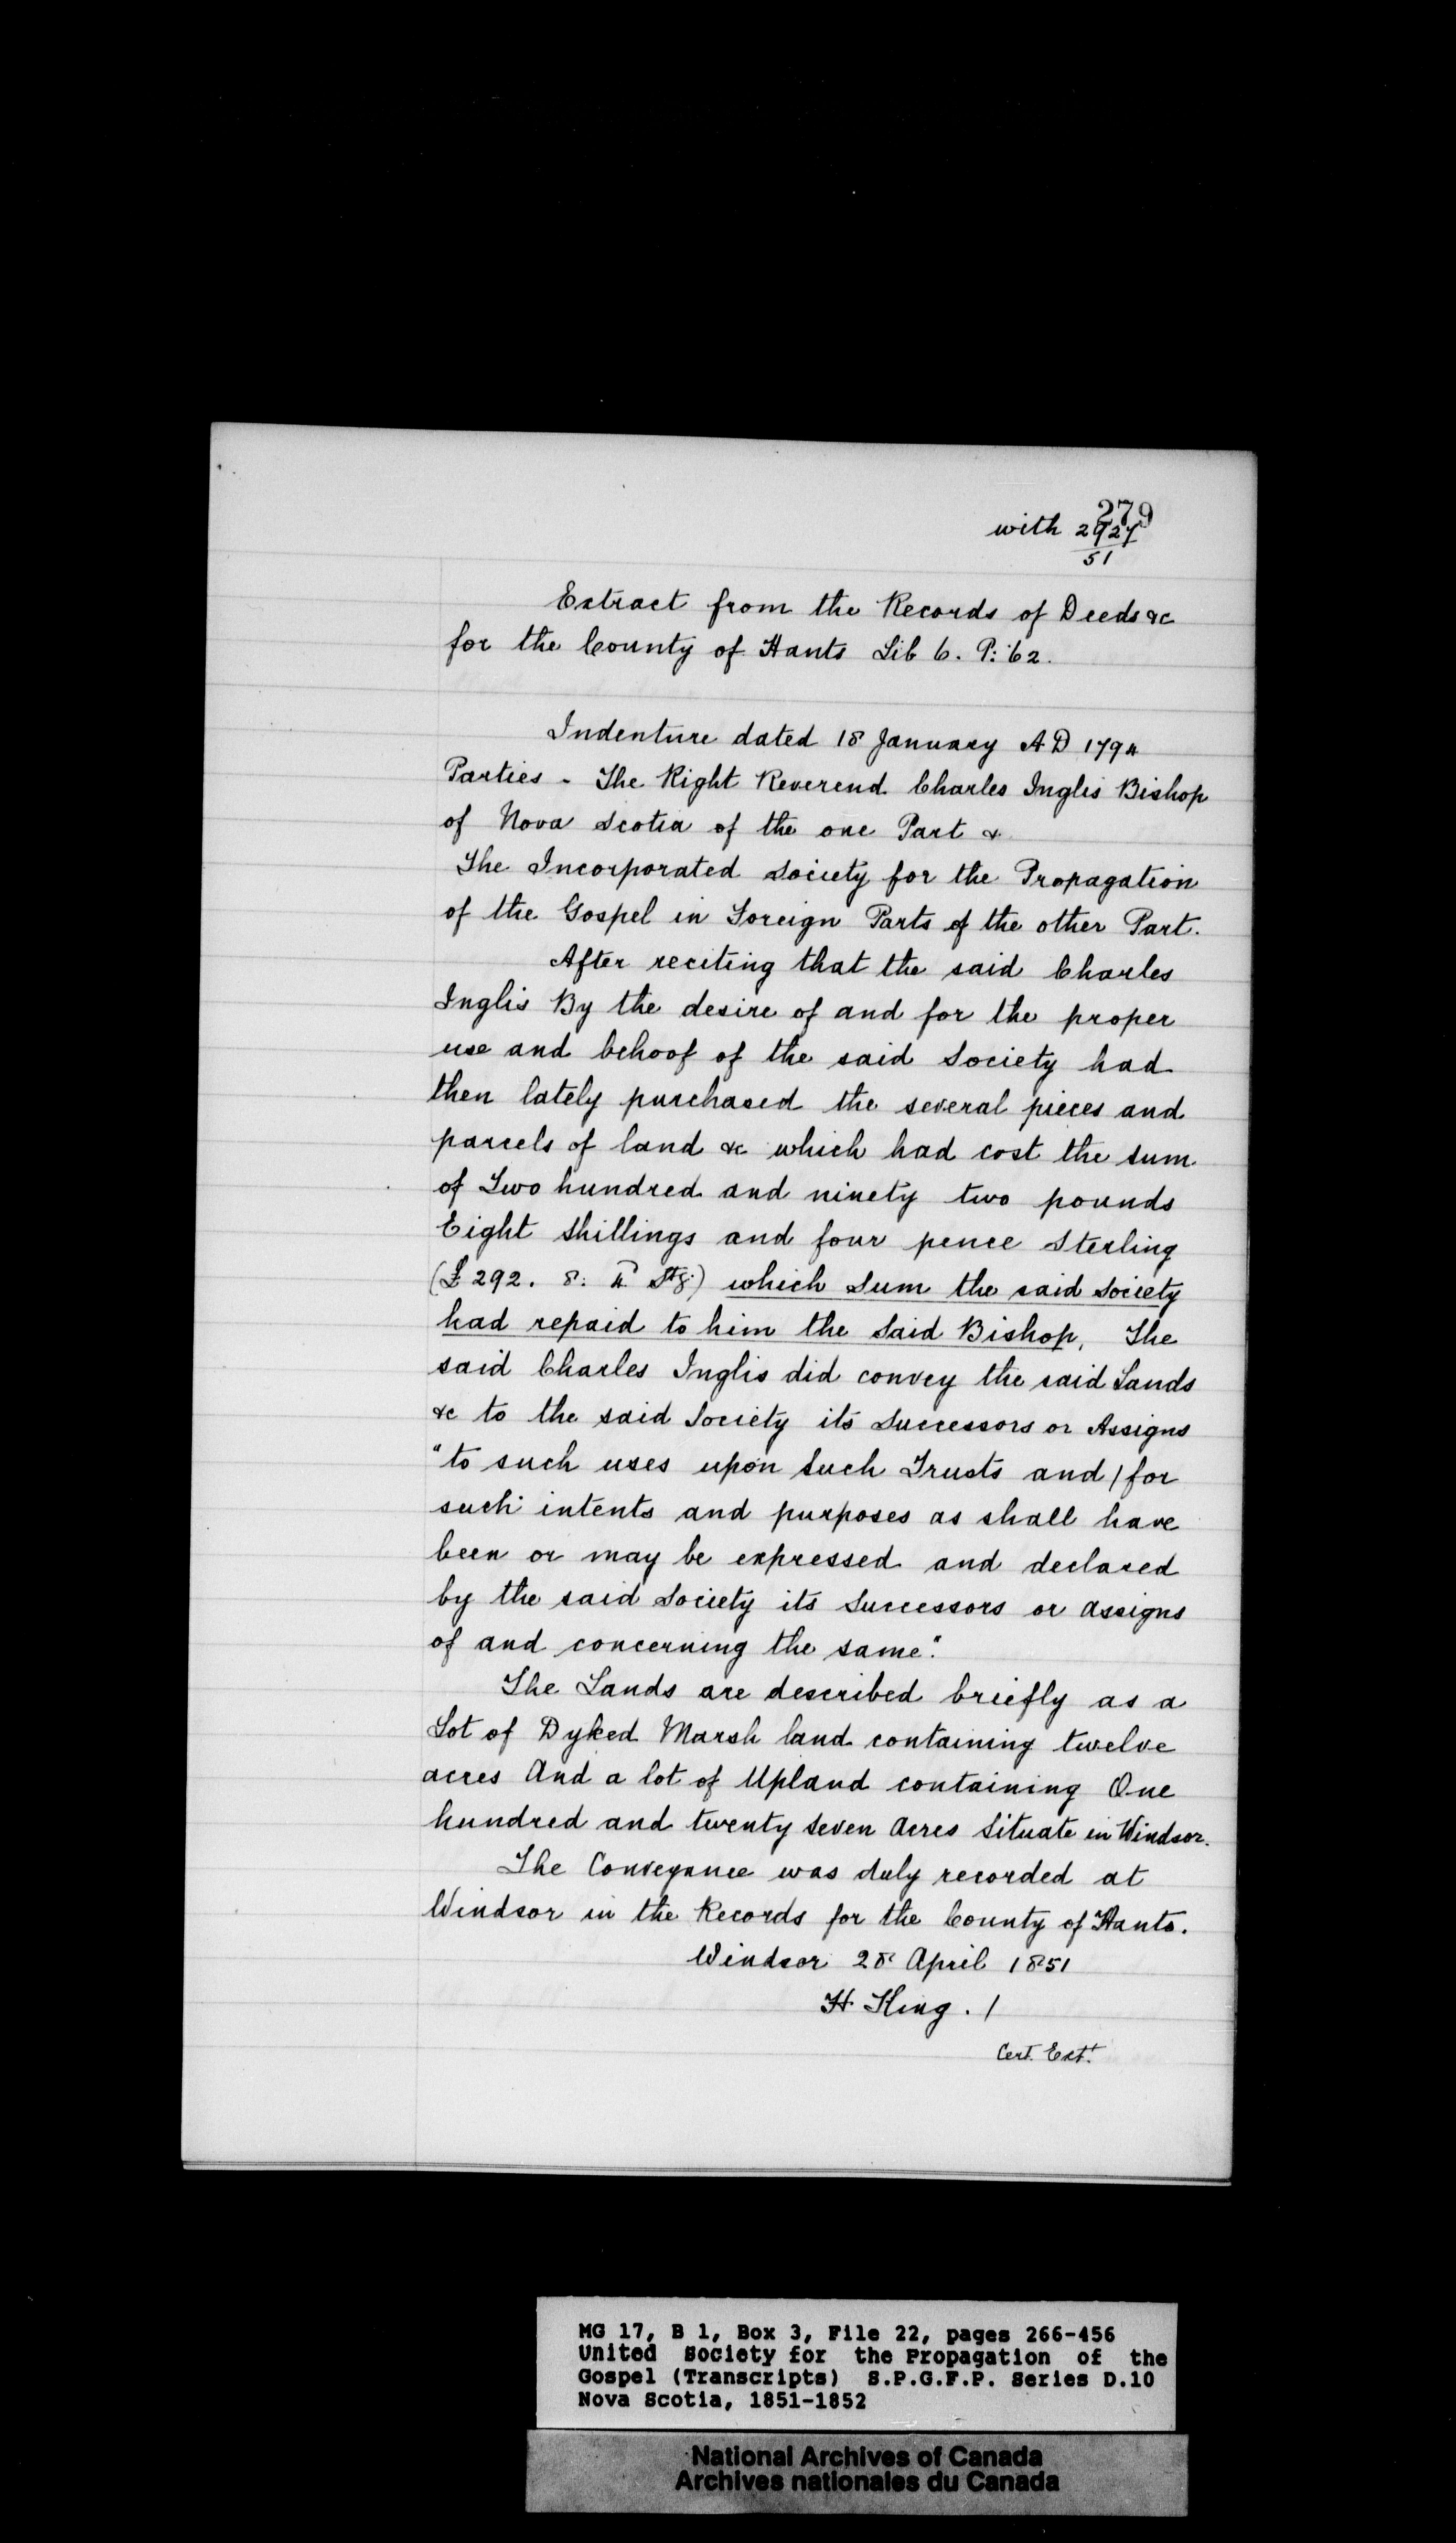 279
with 2927
51
Extract from the Records of Deeds &c
for the County of Hants Lib 6. P: 62.
Indenture dated 18 January AD 1794
Parties - The Right Reverend Charles Inglis Bishop
of Nova Scotia of the one Part &
The Incorporated Society for the Propagation
of the Gospel in Foreign Parts of the other Part.
After reciting that the said Charles
Inglis By the desire of and for the proper
use and behoof of the said Society had
then lately purchased the several pieces and
parcels of land &c which had cost the sum
of Two hundred and ninety two pounds
Eight Shillings and four pence Sterling
(£292. 8: 4 Stg.) which Sum the said Society
had repaid to him the Said Bishop, The
said Charles Inglis did convey the said Lands
&c to the said Society its Successors or Assigns
"to such uses upon Such Trusts and / for
such intents and purposes as shall have
been or may be expressed and declared
by the said Society its Successors or assigns
of and concerning the same."
The Lands are described briefly as a
Lot of Dyked Marsh land containing twelve
acres And a lot of Upland containing One
hundred and twenty Seven Acres Situate in Windsor.
The Conveyance was duly recorded at
Windsor in the Records for the County of Hants.
Windsor 28 April 1851
H King. /
Cert. Ext.
MG 17, B 1, Box 3, File 22, pages 266-456
United Society for the Propagation of the
Gospel (Transcripts) S.P.G.F.P. Series D.10
Nova Scotia, 1851-1852
National Archives of Canada
Archives nationales du Canada